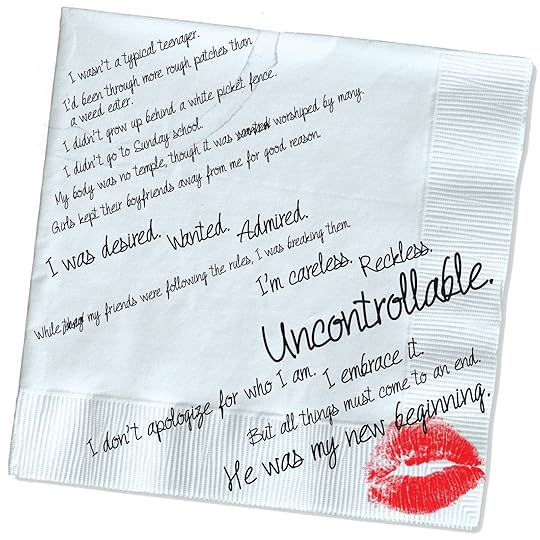 I wasn't a typical teenager.
I'd been through more rough patches than
a weed eater.
I didn't grow up behind a white picket fence.
I didn't go to Sunday school.
My body was no temple, though it was worshiped by many.
Girls kept their boyfriends away from me for good reason.
I was desired. Wanted. Admired.
While my friends were following the rules, I was breaking them
I'm careless. Reckless.
Uncontrollable.
I don't apologize for who I am. I embrace it.
But all things must come to an end.
He was my new beginning.